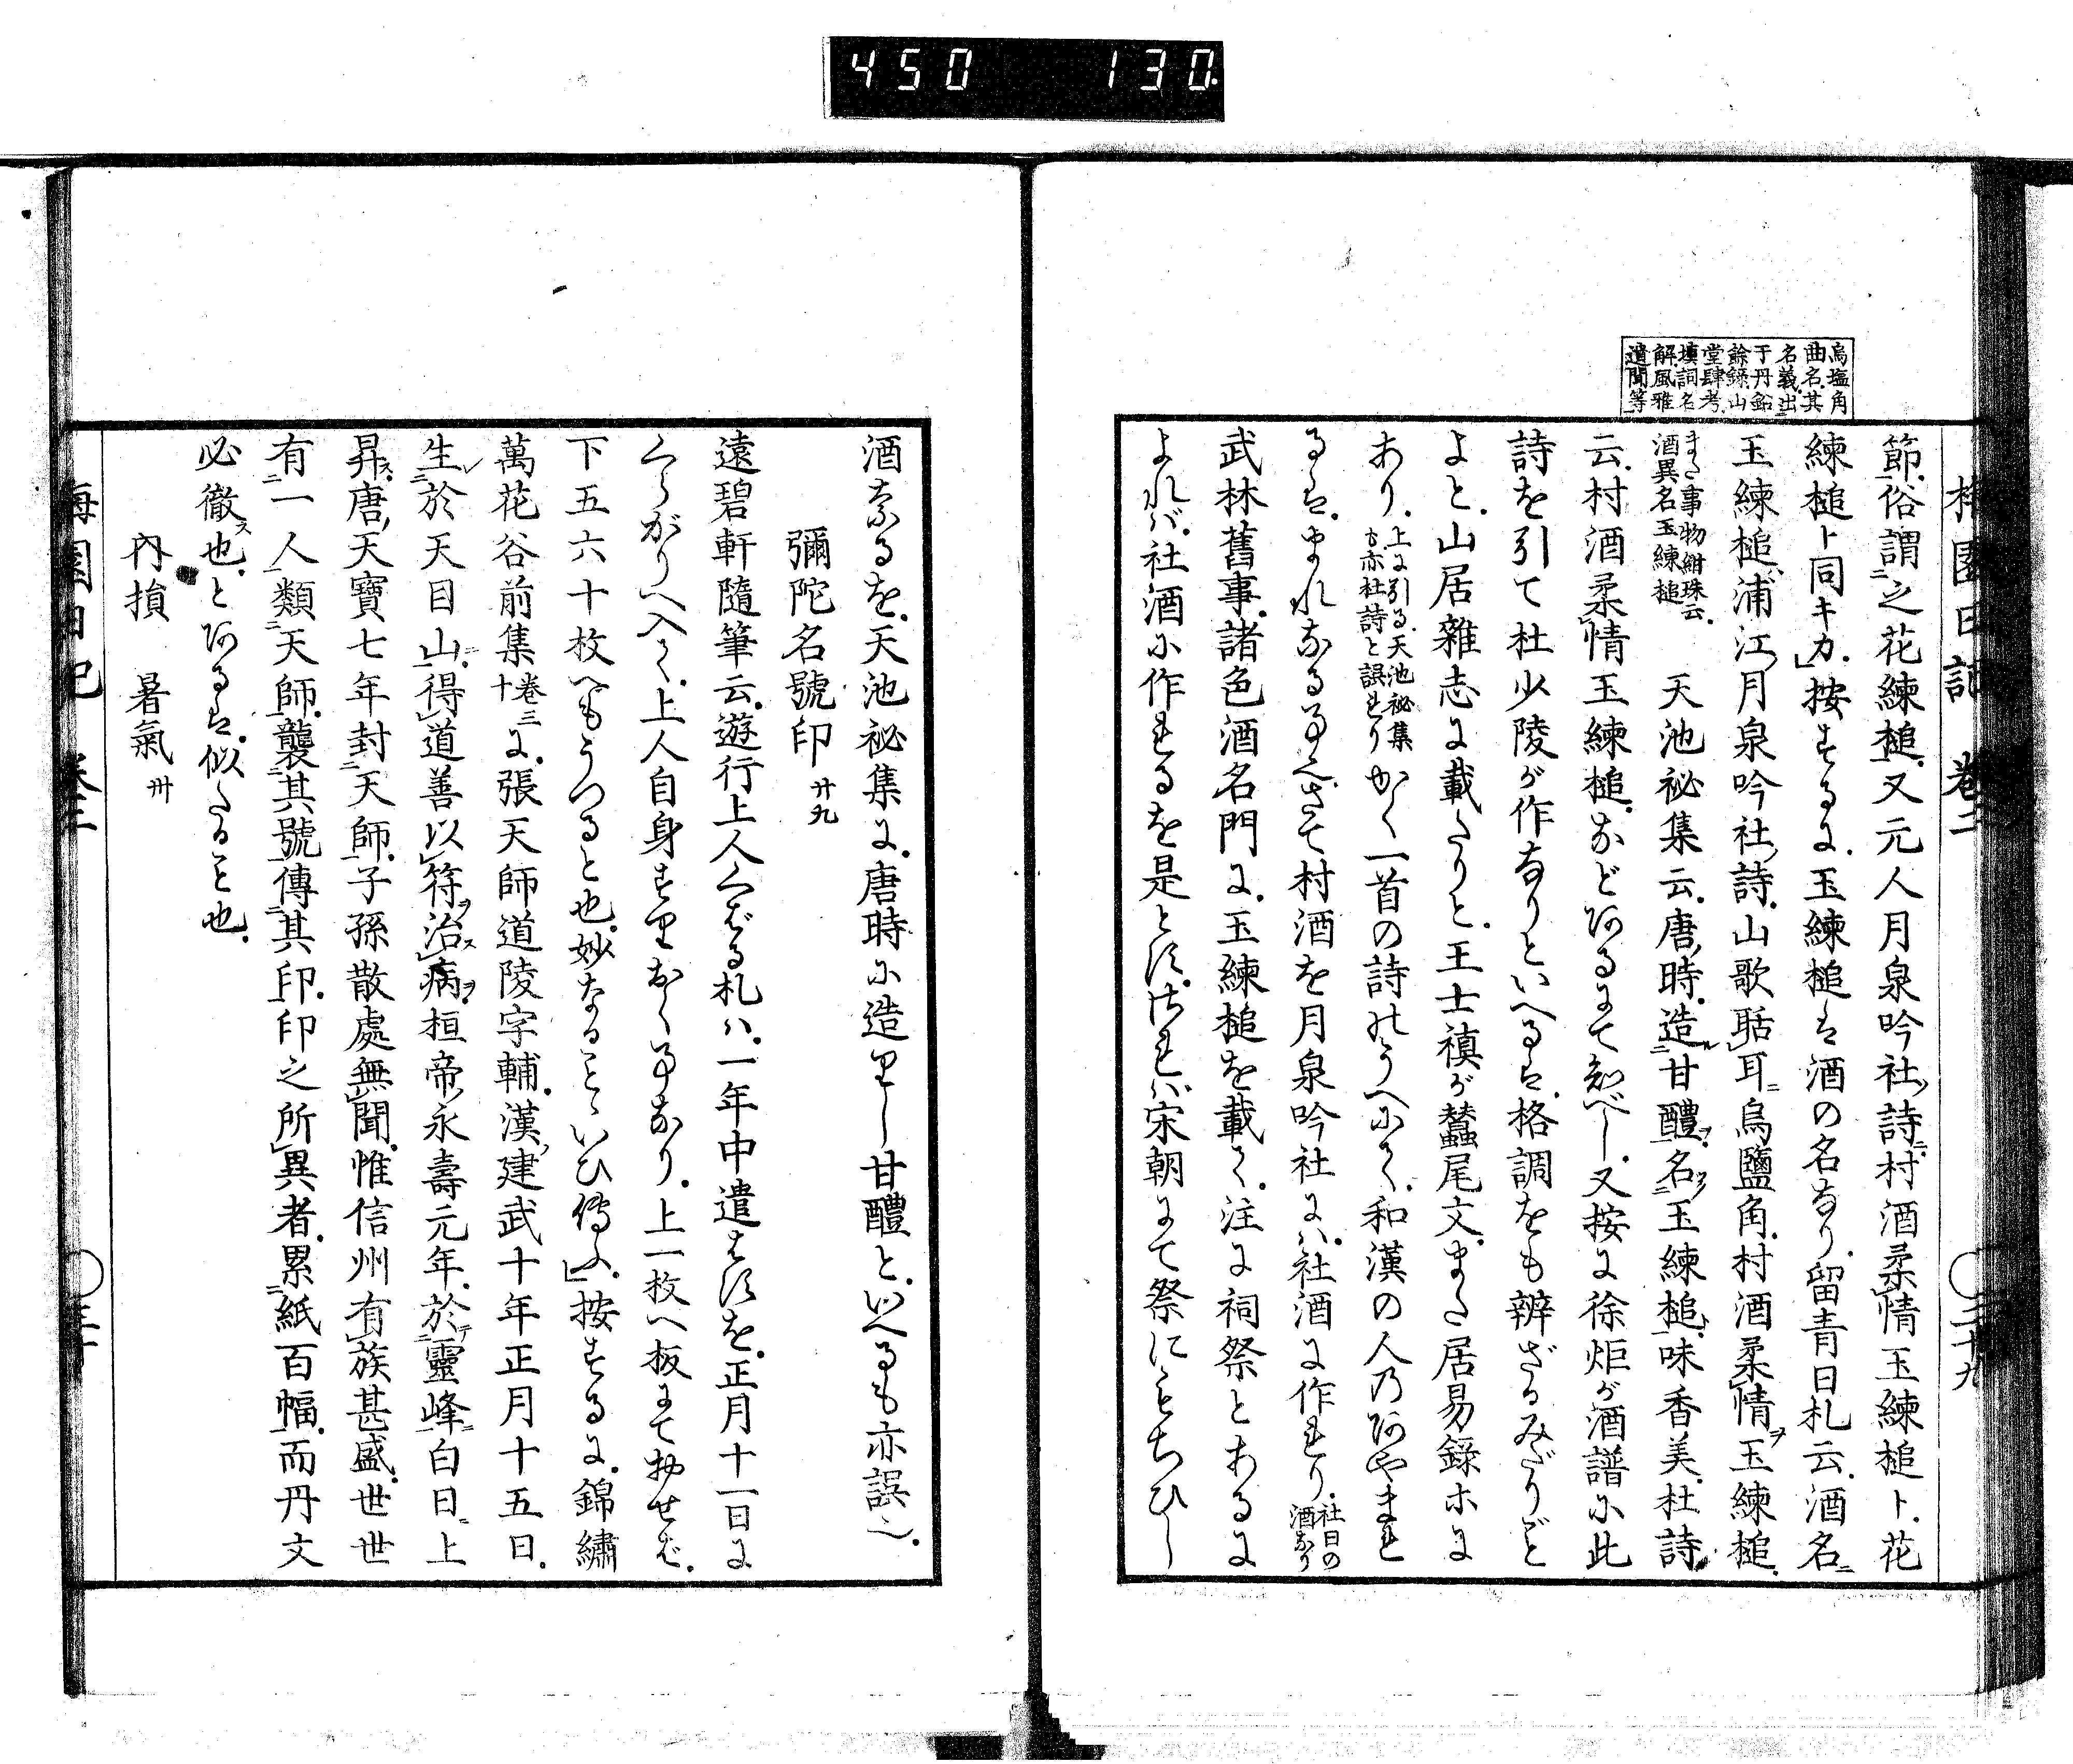 450 130
梅園日記 卷二 二十九
烏塩角
曲名其
名義出
于丹鉛
餘錄山
堂肆考
填詞名
解風雅
遺聞等
節俗謂之花練槌又元人月泉吟社ノ詩ニ村酒柔情玉練槌ト花
練槌ト同キカ」按ずるに玉練槌は酒の名なり留青日札云酒名
玉練槌浦江ノ月泉吟社ノ詩山歌聒耳烏鹽角村酒柔情ヲ玉練槌
また事物紺珠云
酒異名玉練槌
天池祕集云唐ノ時造ル甘醴ヲ名ツク玉練槌ト味香美杜詩
云村酒柔情玉練槌などあるにて知べし又按に徐炬が酒譜に此
詩を引て杜少陵が作なりといへるは格調をも辨ざるみだりご
よと山居雜志に載たりと王士禛が蠶尾文また居易錄ホに
あり
上に引る天池祕集
も亦杜詩と誤れり
かく一首の詩のうへにて和漢の人乃あやまれ
るはまれなる事也さて村酒を月泉吟社にハ社酒に作れり
社日の
酒なり
武林舊事諸色酒名門に玉練槌を載て注に祠祭とあるに
よれバ社酒に作れるを是とすされバ宋朝にて祭にもちひし
酒なるを天池祕集に唐時に造りし甘醴といへるも亦誤也
彌陀名號印 廿九
遠碧軒隨筆云遊行上人くばる札ハ一年中遣はすを正月十一日に
くらがりへ入て上人自身すりおく事なり上一枚へ板にて物せば
下五六十枚へもうつると也妙なることいひ傳ふ」按ずるに錦繡
萬花谷前集
卷三
十
に張天師道陵字輔漢ノ建武十年正月十五日
生於天目山得道善以符ヲ治ス病ヲ桓帝ノ永壽元年於靈峰白日上
昇ス唐ノ天寶七年封天師子孫散處無聞惟信州有族甚盛世世
有一人類天師襲其號傳其印印之所異者累紙百幅而丹文
必徹ス也とあるは似たること也
內損 暑氣 卅
梅園日記 卷二 三十